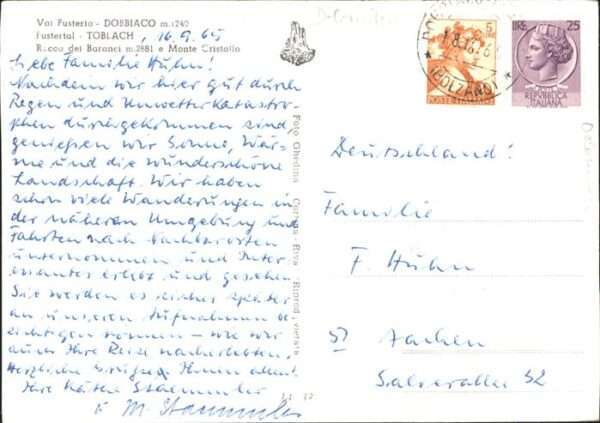 Val Pusteria - DOBBIACO m. 1240
Pustertal - TOBLACH, 16.9.65
R.cca dei Baranci m. 2681 e Monte Cristallo
Liebe Familie Huhn!
Nachdem wir hier gut durch
Regen und Unwetterkatastro-
phen durchgekommen sind,
genießen wir Sonne, Wär-
me und die wunderschöne
Landschaft. Wir haben
schon viele Wanderungen in
der näheren Umgebung und
Fahrten nach Nachbarorten
unternommen und Inter
essantes erlebt und gesehen.
Sie werden es sicher später
an unseren Aufnahmen be-
sichtigen können – wie wir
auch Ihre Reise nacherlebten.
Herzliche Grüße Ihnen allen!
Ihre Käthe Stammler
u. M. Stammler
Foto Ghedina - Cortina - Riprod. vietata
5
LIRE 25
POSTE ITALIANE
REPUBBLICA
ITALIANA
(BOLZANO)
Deutschland!
Familie
F. Huhn
51 Aachen
Salierallee 52